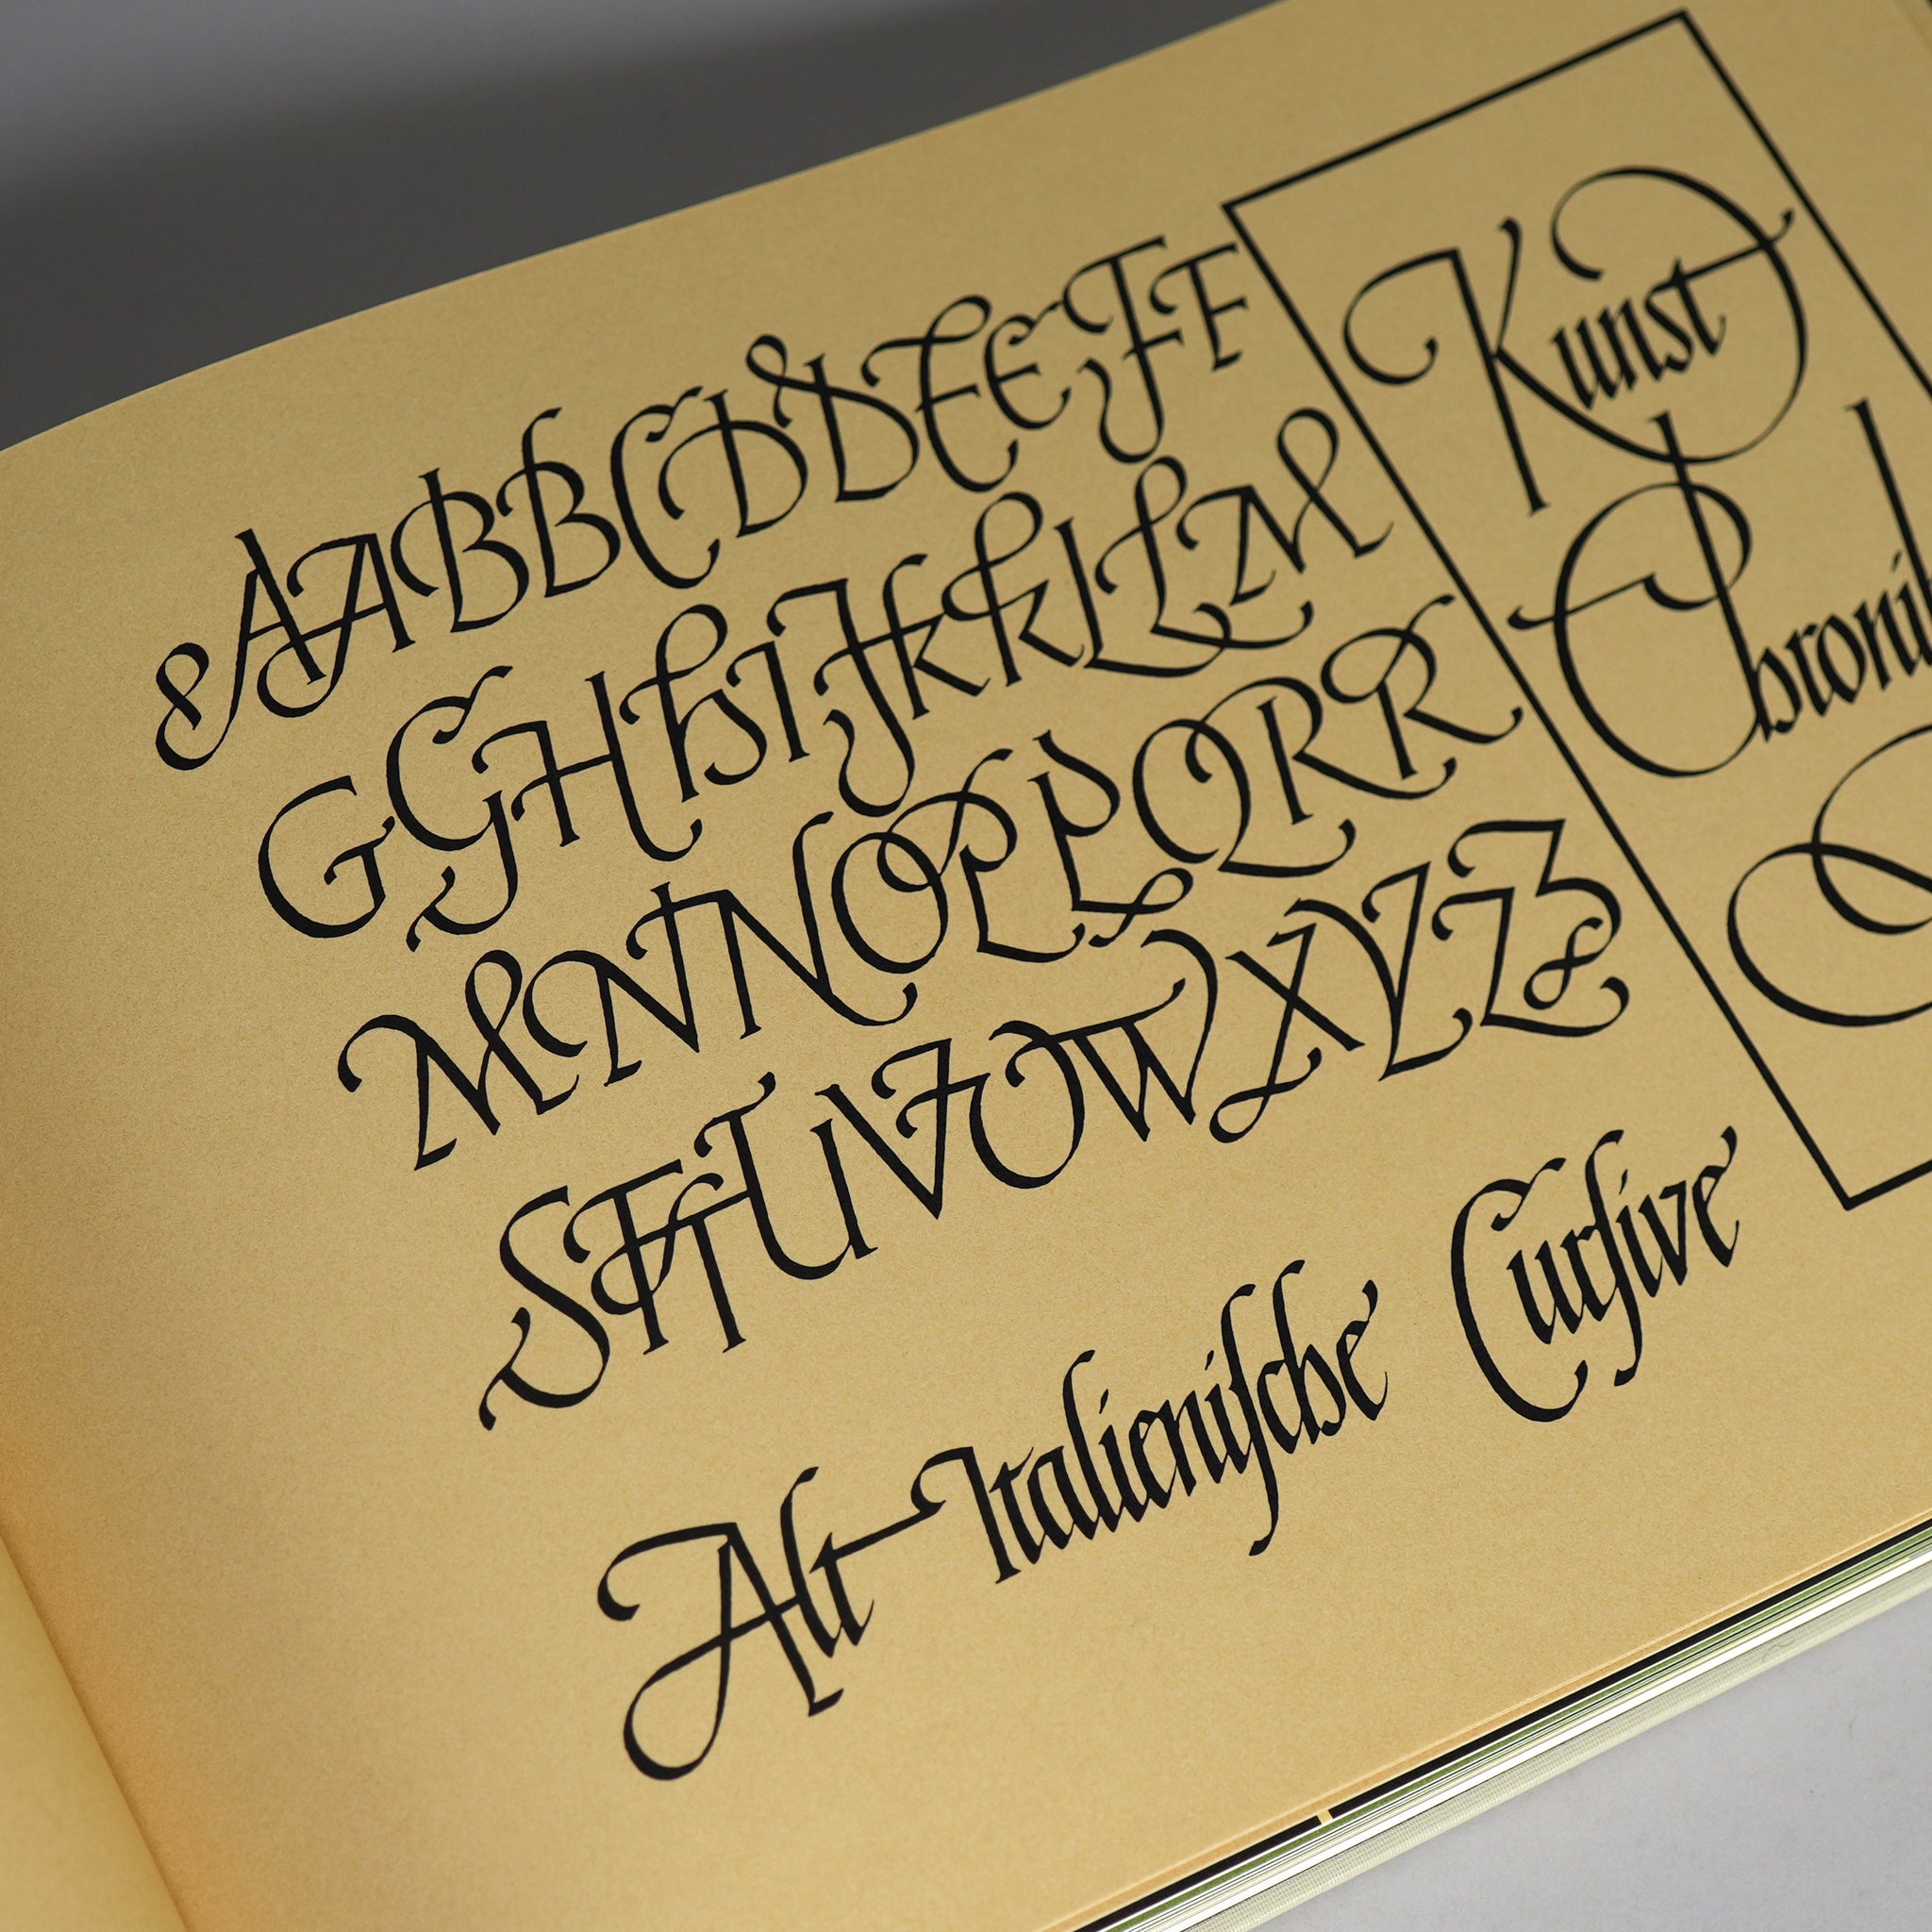 AABBCDDEEFF
GGHHIJKKLLM
MNNOPPQRR
STTUVWXYZZ
Alt Italieniſche Curſive
Kunst
Chroni